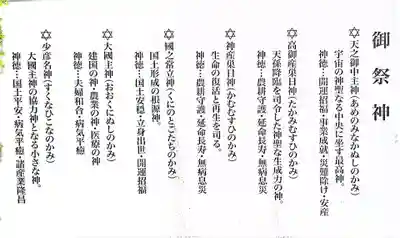 御祭神
✡天之御中主神(あめのみなかぬしのかみ)
宇宙の神聖なる中央に坐す最高神。
神徳…開運招福・事業成就・災難除け・安産
✡高御産巣日神(たかみむすひのかみ)
天孫降臨を司令した神聖な生成力の神。
神徳…農耕守護・延命長寿・無病息災
✡神産巣日神(かむむすひのかみ)
生命の復活と再生を司る。
神徳…農耕守護・延命長寿・無病息災
✡國之常立神(くにのとこたちのかみ)
国土形成の根源神。
神徳…国土安穏・立身出世・開運招福
✡大國主神(おおくにぬしのかみ)
建国の神・農業の神・医療の神
神徳…夫婦和合・病気平癒
✡少彦名神(すくなひこなのかみ)
大國主神の協力神となる小さな神。
神徳…国土平安・病気平癒・諸産業隆昌